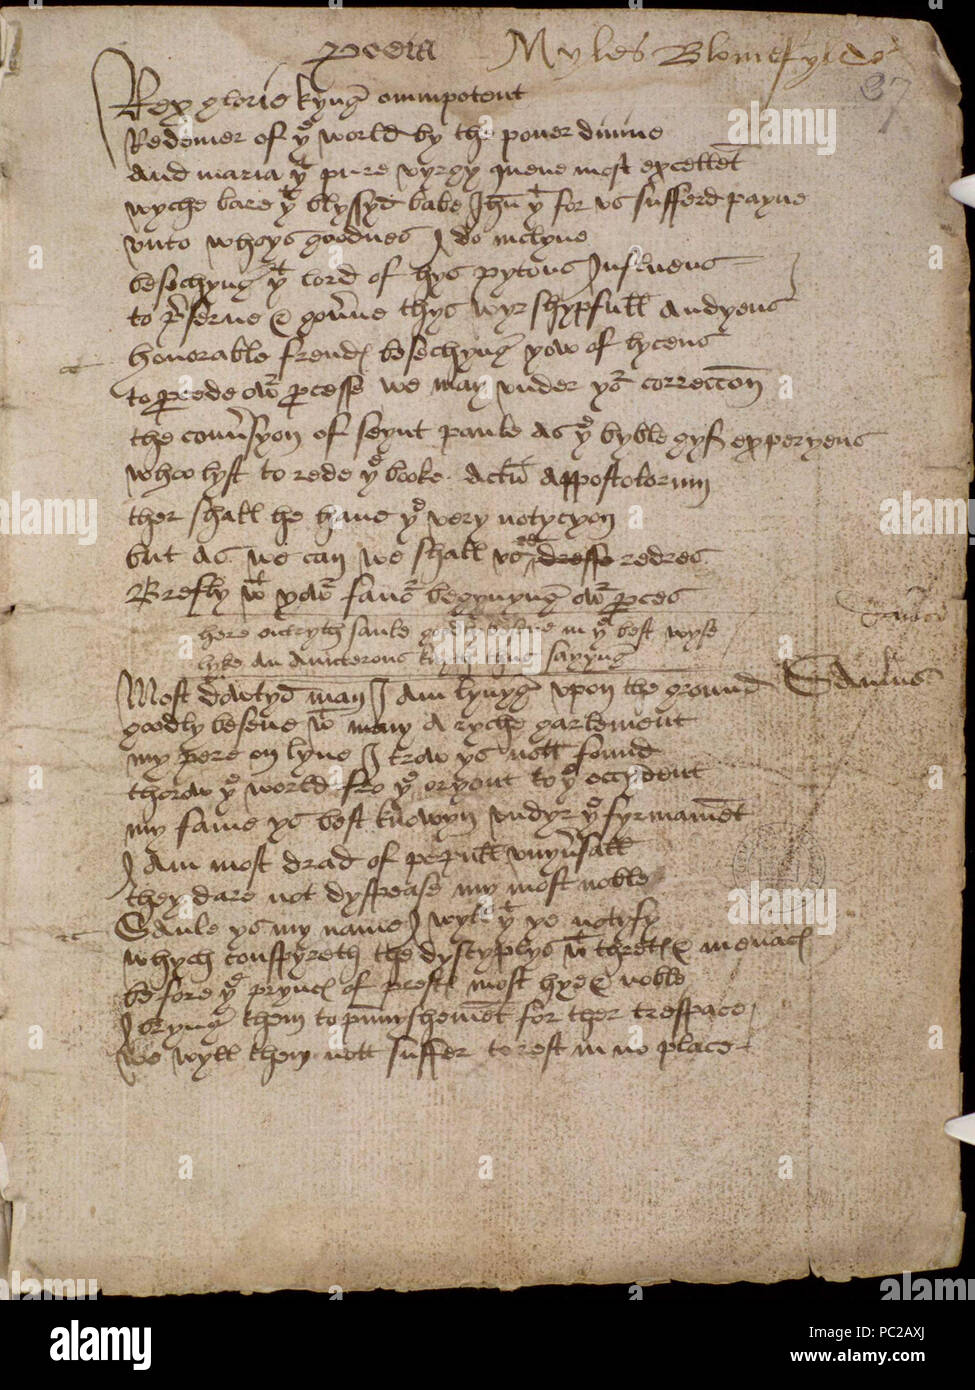 Poeta
Myles Blomefylde
37
Rex glorie kyng omnipotent
Redemer of yͤ world by the pouer diuine
And maria yͭ pure vyrgy quene most excellēt
wyche bare yͭ blyssyd babe Jhū yͭ for vs sufferd payne
vnto whoys goodnes I do inclyne
besechyng yͭ lord of hys pytous Influens
to p̄serue & goūne thys wyrshypfull audyens
honorable frendꝭ besechyng yow of lycens
to procede owͬ processe we may vnder yoͬ correccōn
the conūsyon of seynt paule as yͤ byble gyf experyens
whoo lyst to rede yͤ booke actū appostolorum
ther shall he haue yͤ very notycyon
but as we can we shall vs redresse redres
Brefly wͭ yowͬ fauoͬ begynyng owͬ proces
here entryth saule goodly besene in yͤ best wyse
lyke an aunterous knyth thus sayyng
Saulus
Most dowtyd man I am lyuyng vpon the ground
goodly besene wͭ many a ryche garlement
my pere on lyue I trow ys nott found
thorow yͤ world fro yͤ oryent to yͤ occydent
my fame ys best knowyn vndyr yͤ fyrmamēt
I am most drad of pepull vnyūsall
they dare not dysplease my most noble
Saule ys my name I wyll yͭ ye notyfy
whych conspyreth the dyscyplys wͭ thretꝭ & menacꝭ
before yͤ pryncꝭ of prestꝭ most hye & noble
I bryng them to punyshemēt for ther trespace
we wyll them nott suffer to rest in no place
a
alamy
alamy
Image ID: PC2AXJ
www.alamy.com